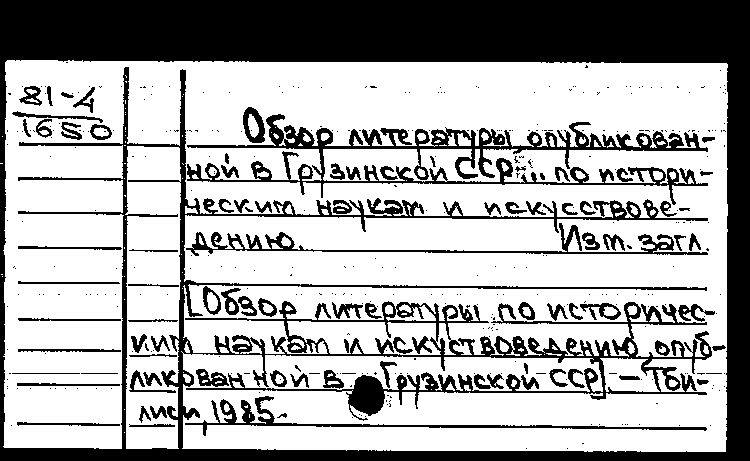 81-4
1650
Обзор литературы, опубликован-
ной в Грузинской ССР... по истори-
ческим наукам и искусствове-
дению. Изм. загл.
[Обзор литературы по историчес-
ким наукам и искуствоведению, опуб-
ликованной в Грузинской ССР]. — Тби-
лиси, 1985.